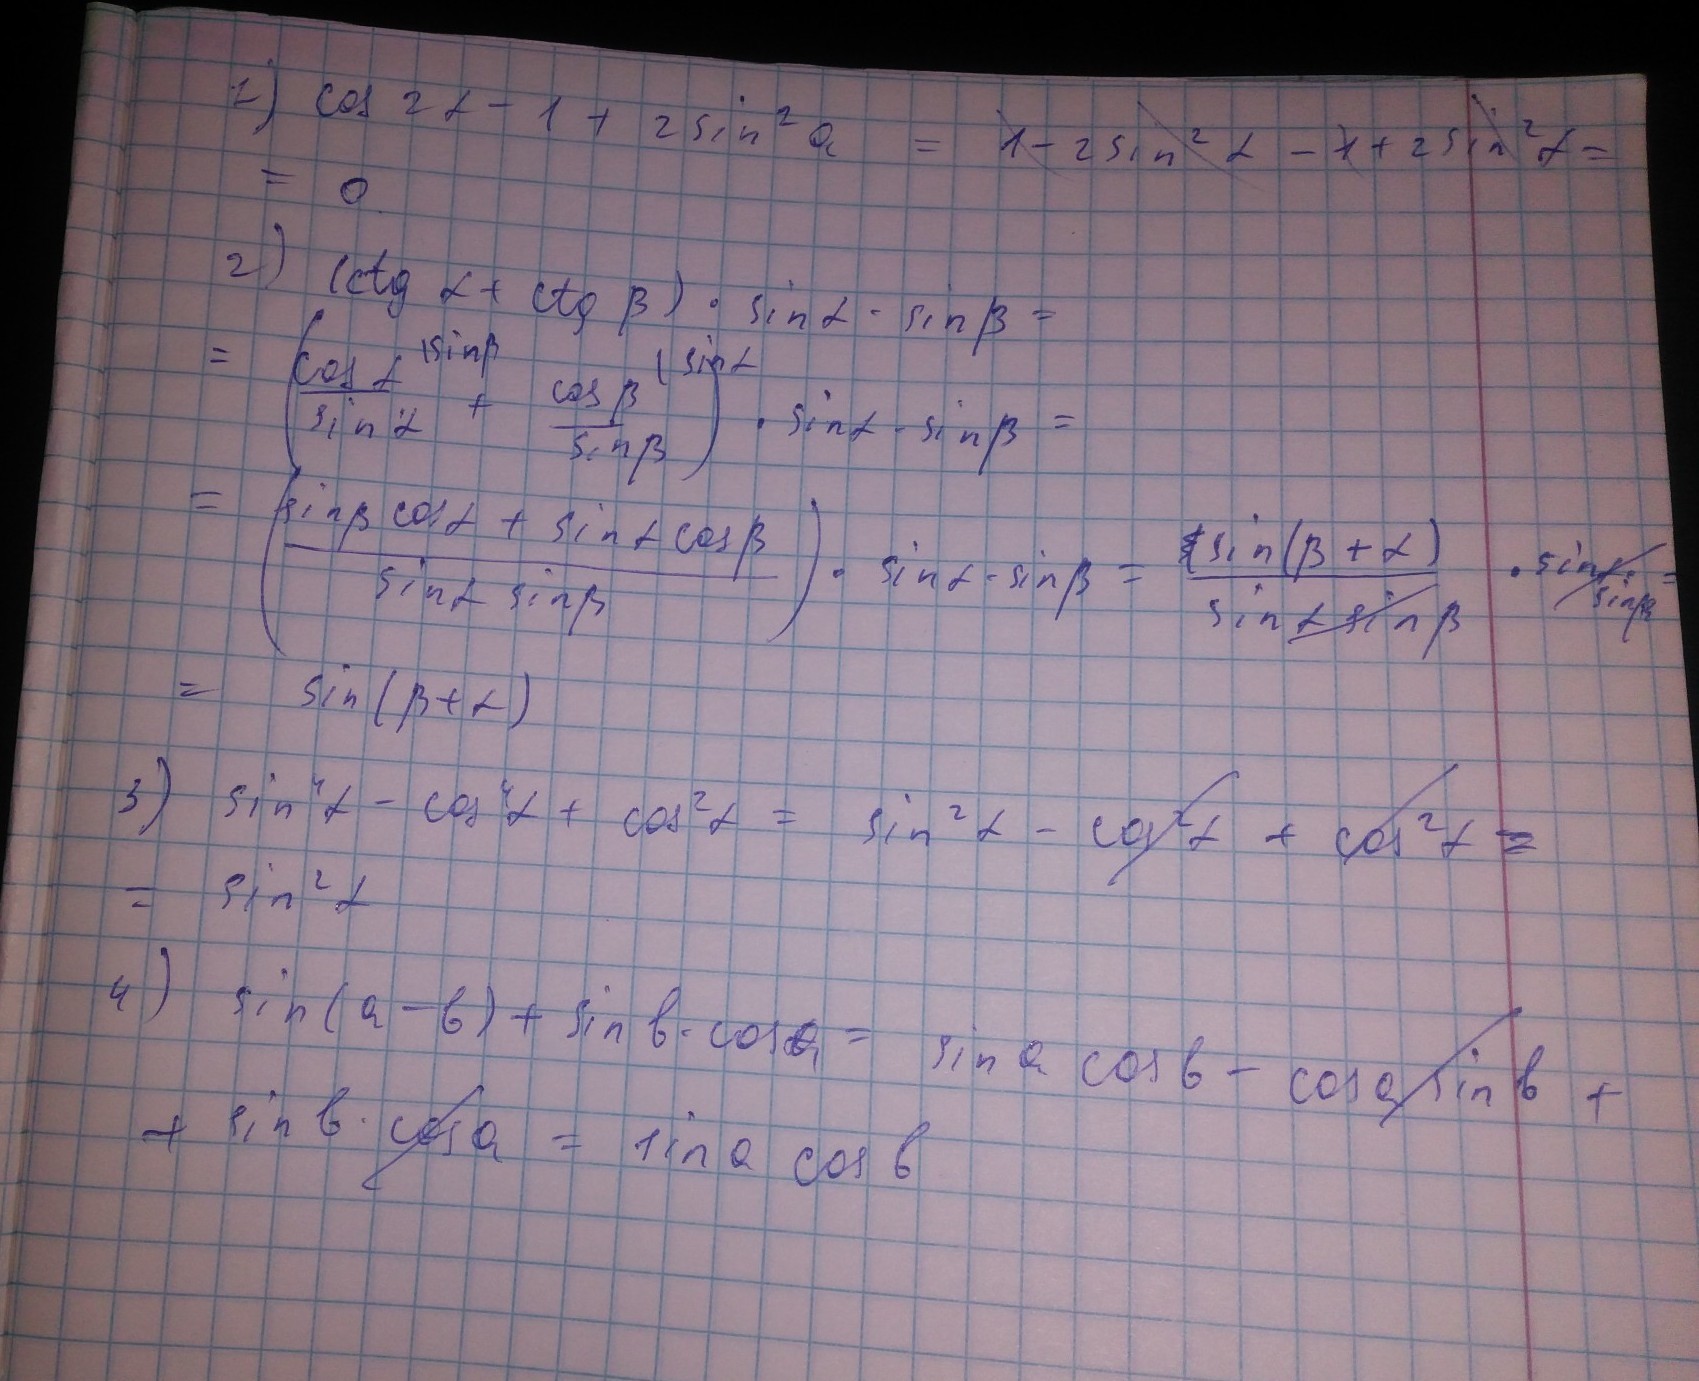 1) cos 2α - 1 + 2 sin² a = 1 - 2 sin² α - 1 + 2 sin² α =
= 0
2) (ctg α + ctg β) · sin α · sin β =
= (cos α / sin α |sin β + cos β / sin β |sin α) · sin α · sin β =
= (sin β cos α + sin α cos β / sin α sin β) · sin α · sin β = sin(β + α) / sin α sin β · sin α · sin β =
= sin(β + α)
3) sin⁴ α - cos⁴ α + cos² α = sin² α - cos² α + cos² α =
= sin² α
4) sin(a - b) + sin b · cos a = sin a cos b - cos a sin b +
+ sin b · cos a = sin a cos b